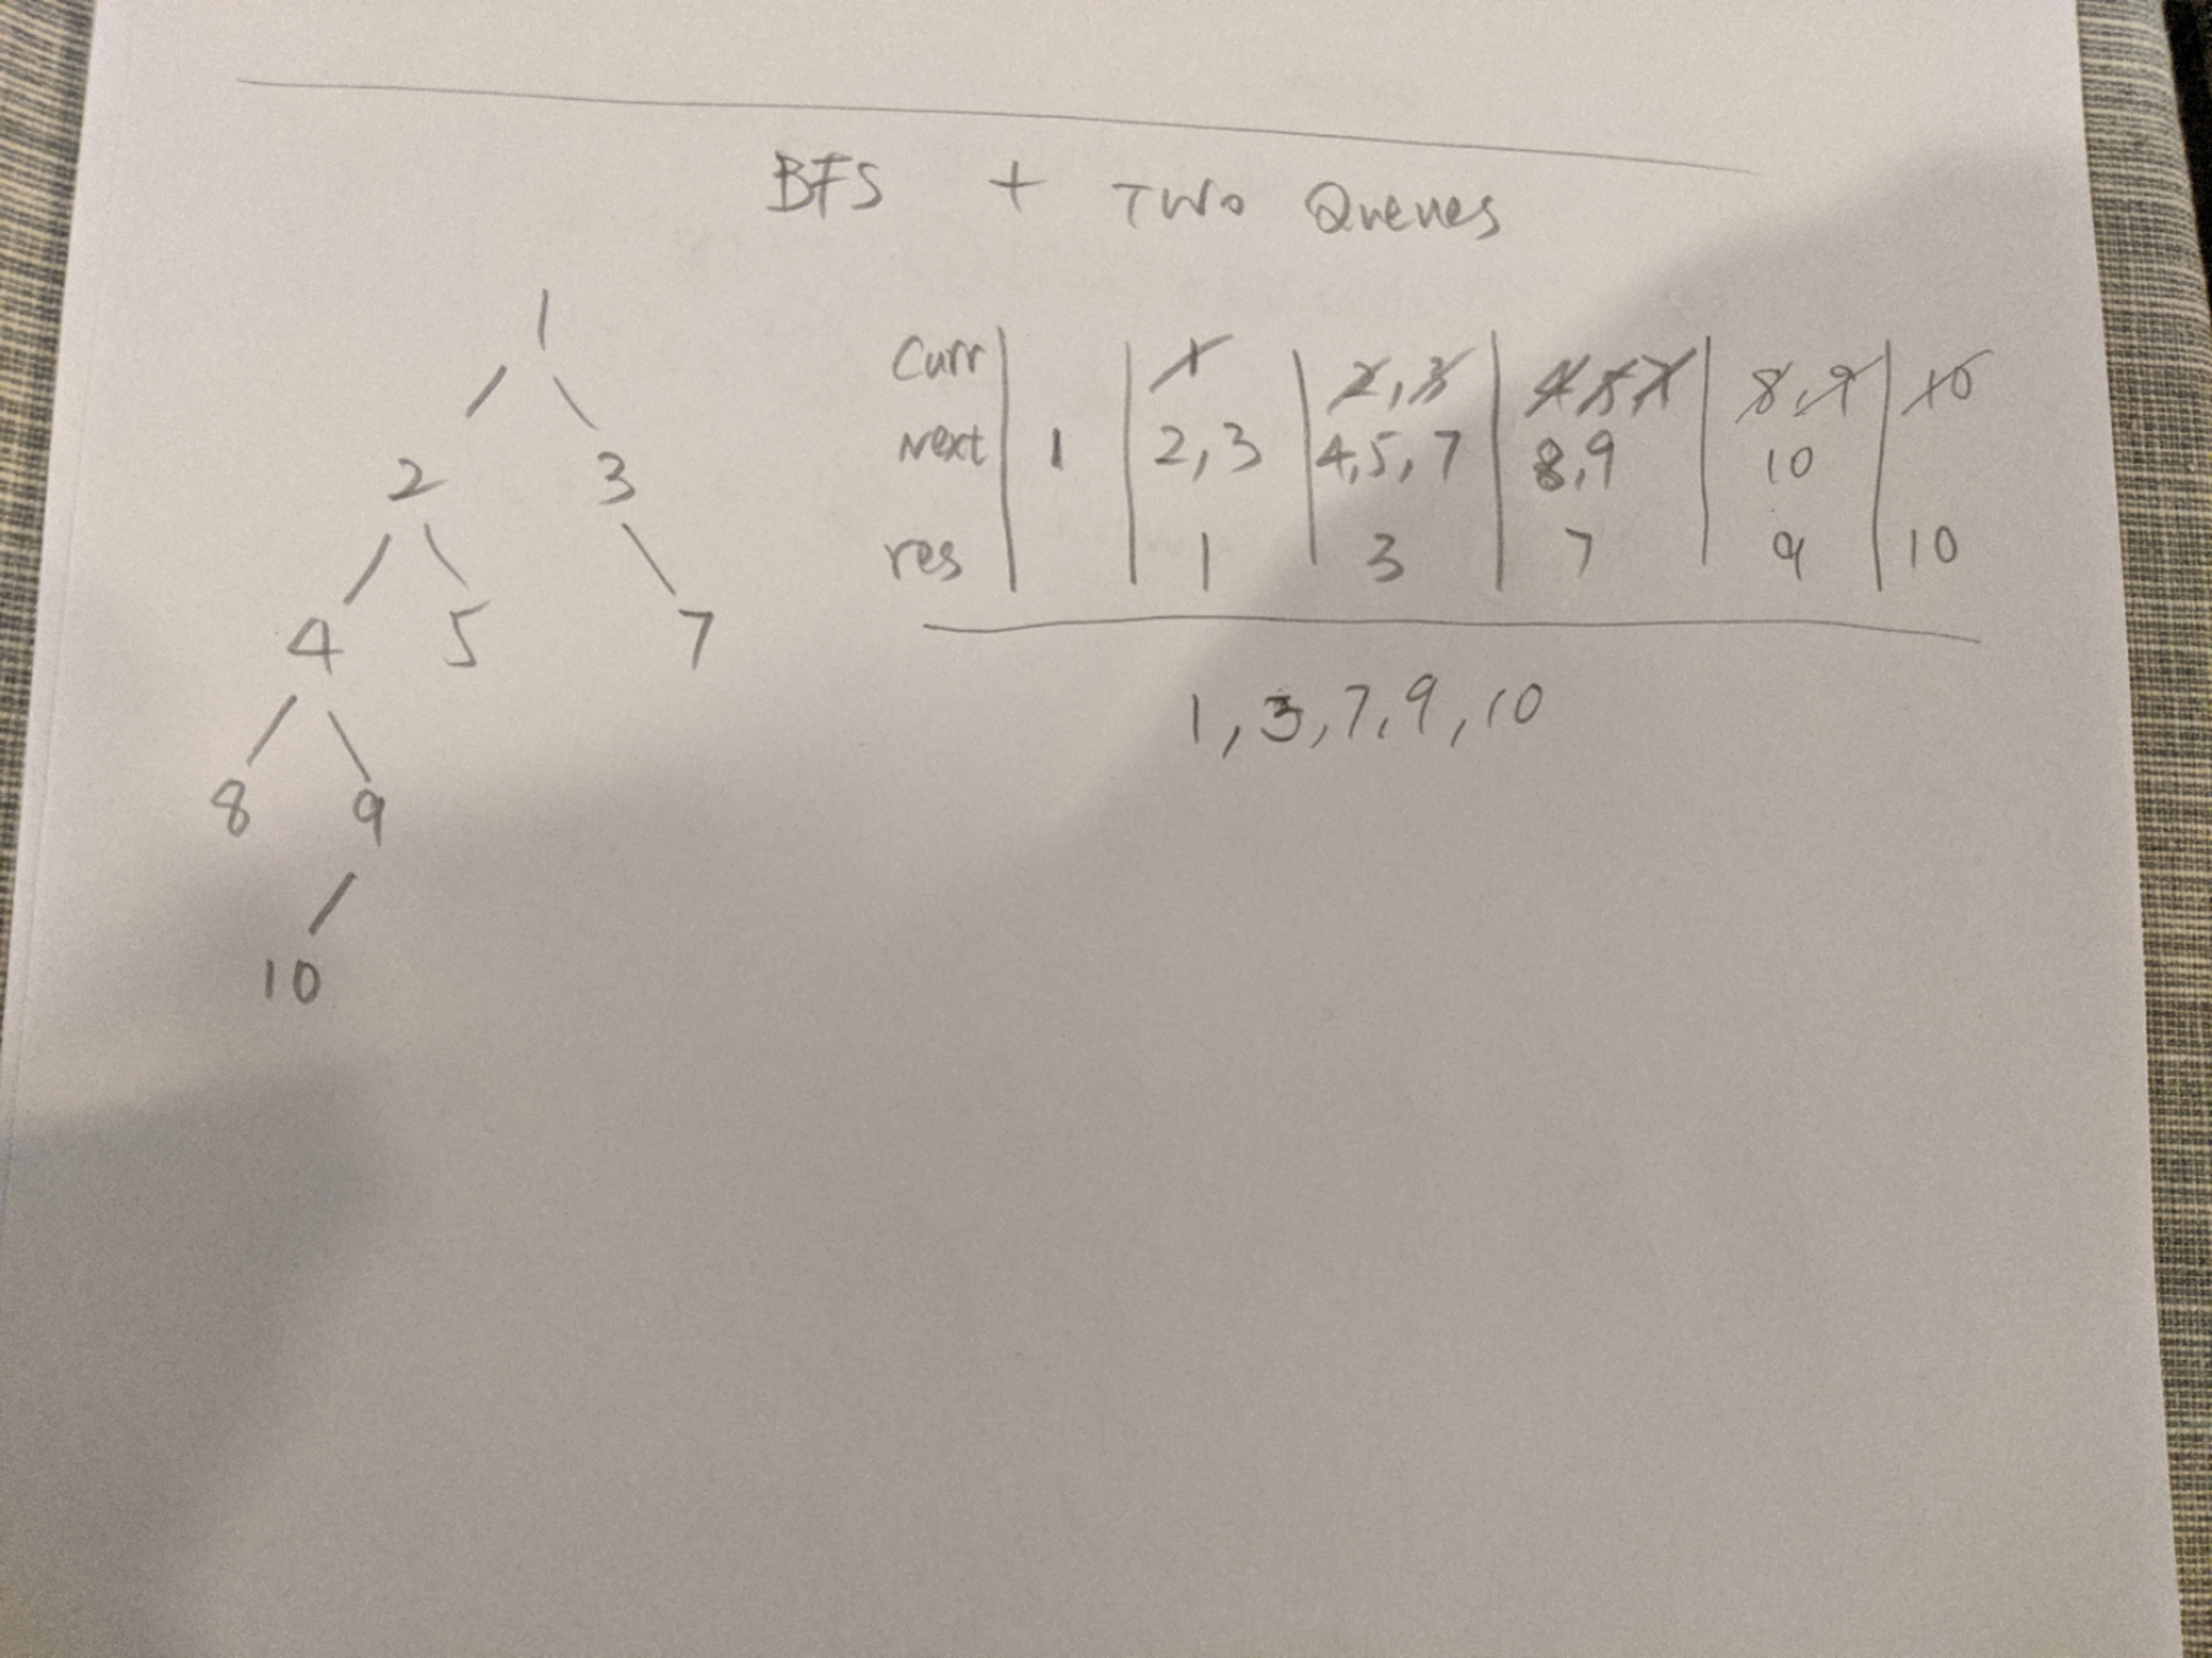 BFS + Two Queues
1
2 3
4 5 7
8 9
10
Curr 1 2,3 4 5 7 8,9 10
Next 1 2,3 4,5,7 8,9 10
res 1 3 7 9 10
1,3,7,9,10